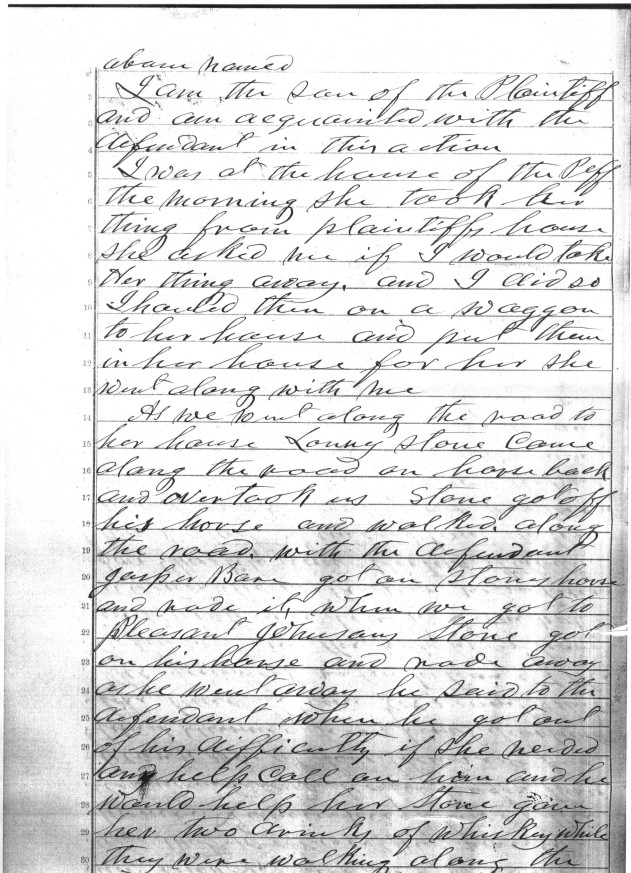 above named
I am the son of the Plaintiff
and am acquainted with the
defendant in this action
I was at the house of the Peff
the morning she took her
thing from plaintiffs house
She asked me if I would take
Her thing away. and I did so
I hauled them on a waggon
to her house and put them
in her house for her she
went along with me
As we went along the road to
her house Lonny Stone Came
along the road on horse back
and overtook us Stone got off
his horse and walked along
the road with the defendant
Jasper Bane got on Stones horse
and rode it, when we got to
Pleasant Johnsons Stone got
on his horse and rode away
as he went away he said to the
defendant when he got out
of his difficulty if she needed
any help Call on him and he
would help her Stone gave
her two drinks of whiskey while
they were walking along the